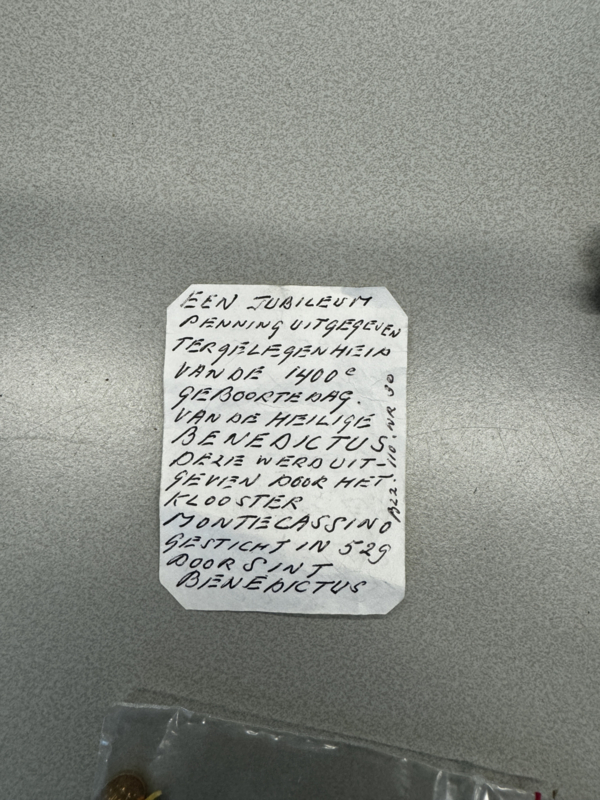 EEN JUBILEUM
PENNING UITGEGEVEN
TERGELEGENHEID
VAN DE 1400e
GEBOORTEDAG.
VAN DE HEILIGE
BENEDICTUS
DEZE WERD UIT-
GEVEN DOOR HET
KLOOSTER
MONTECASSINO
GESTICHT IN 529
DOOR SINT
BENEDICTUS
BLZ. 110. NR 30